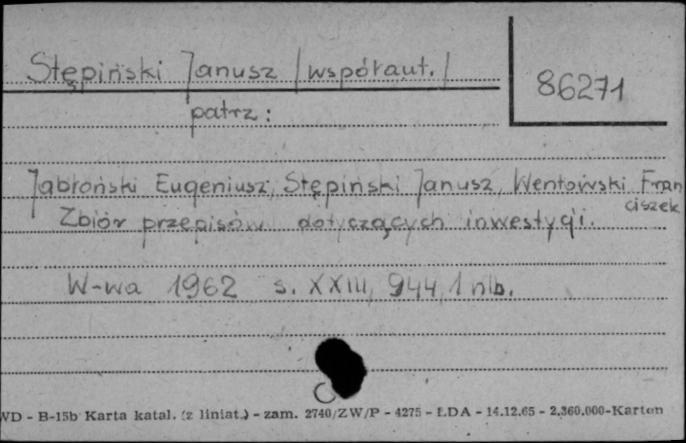 Stępiński Janusz /współaut./
86271
patrz:
Jabłoński Eugeniusz, Stępiński Janusz, Wentowski Franciszek
Zbiór przepisów dotyczących inwestycji.
W-wa 1962 s. XXIII, 944, 1 nlb.
WD - B-15b Karta katal. (z liniat.) - zam. 2740/ZW/P - 4275 - ŁDA - 14.12.65 - 2,360.000-Karton